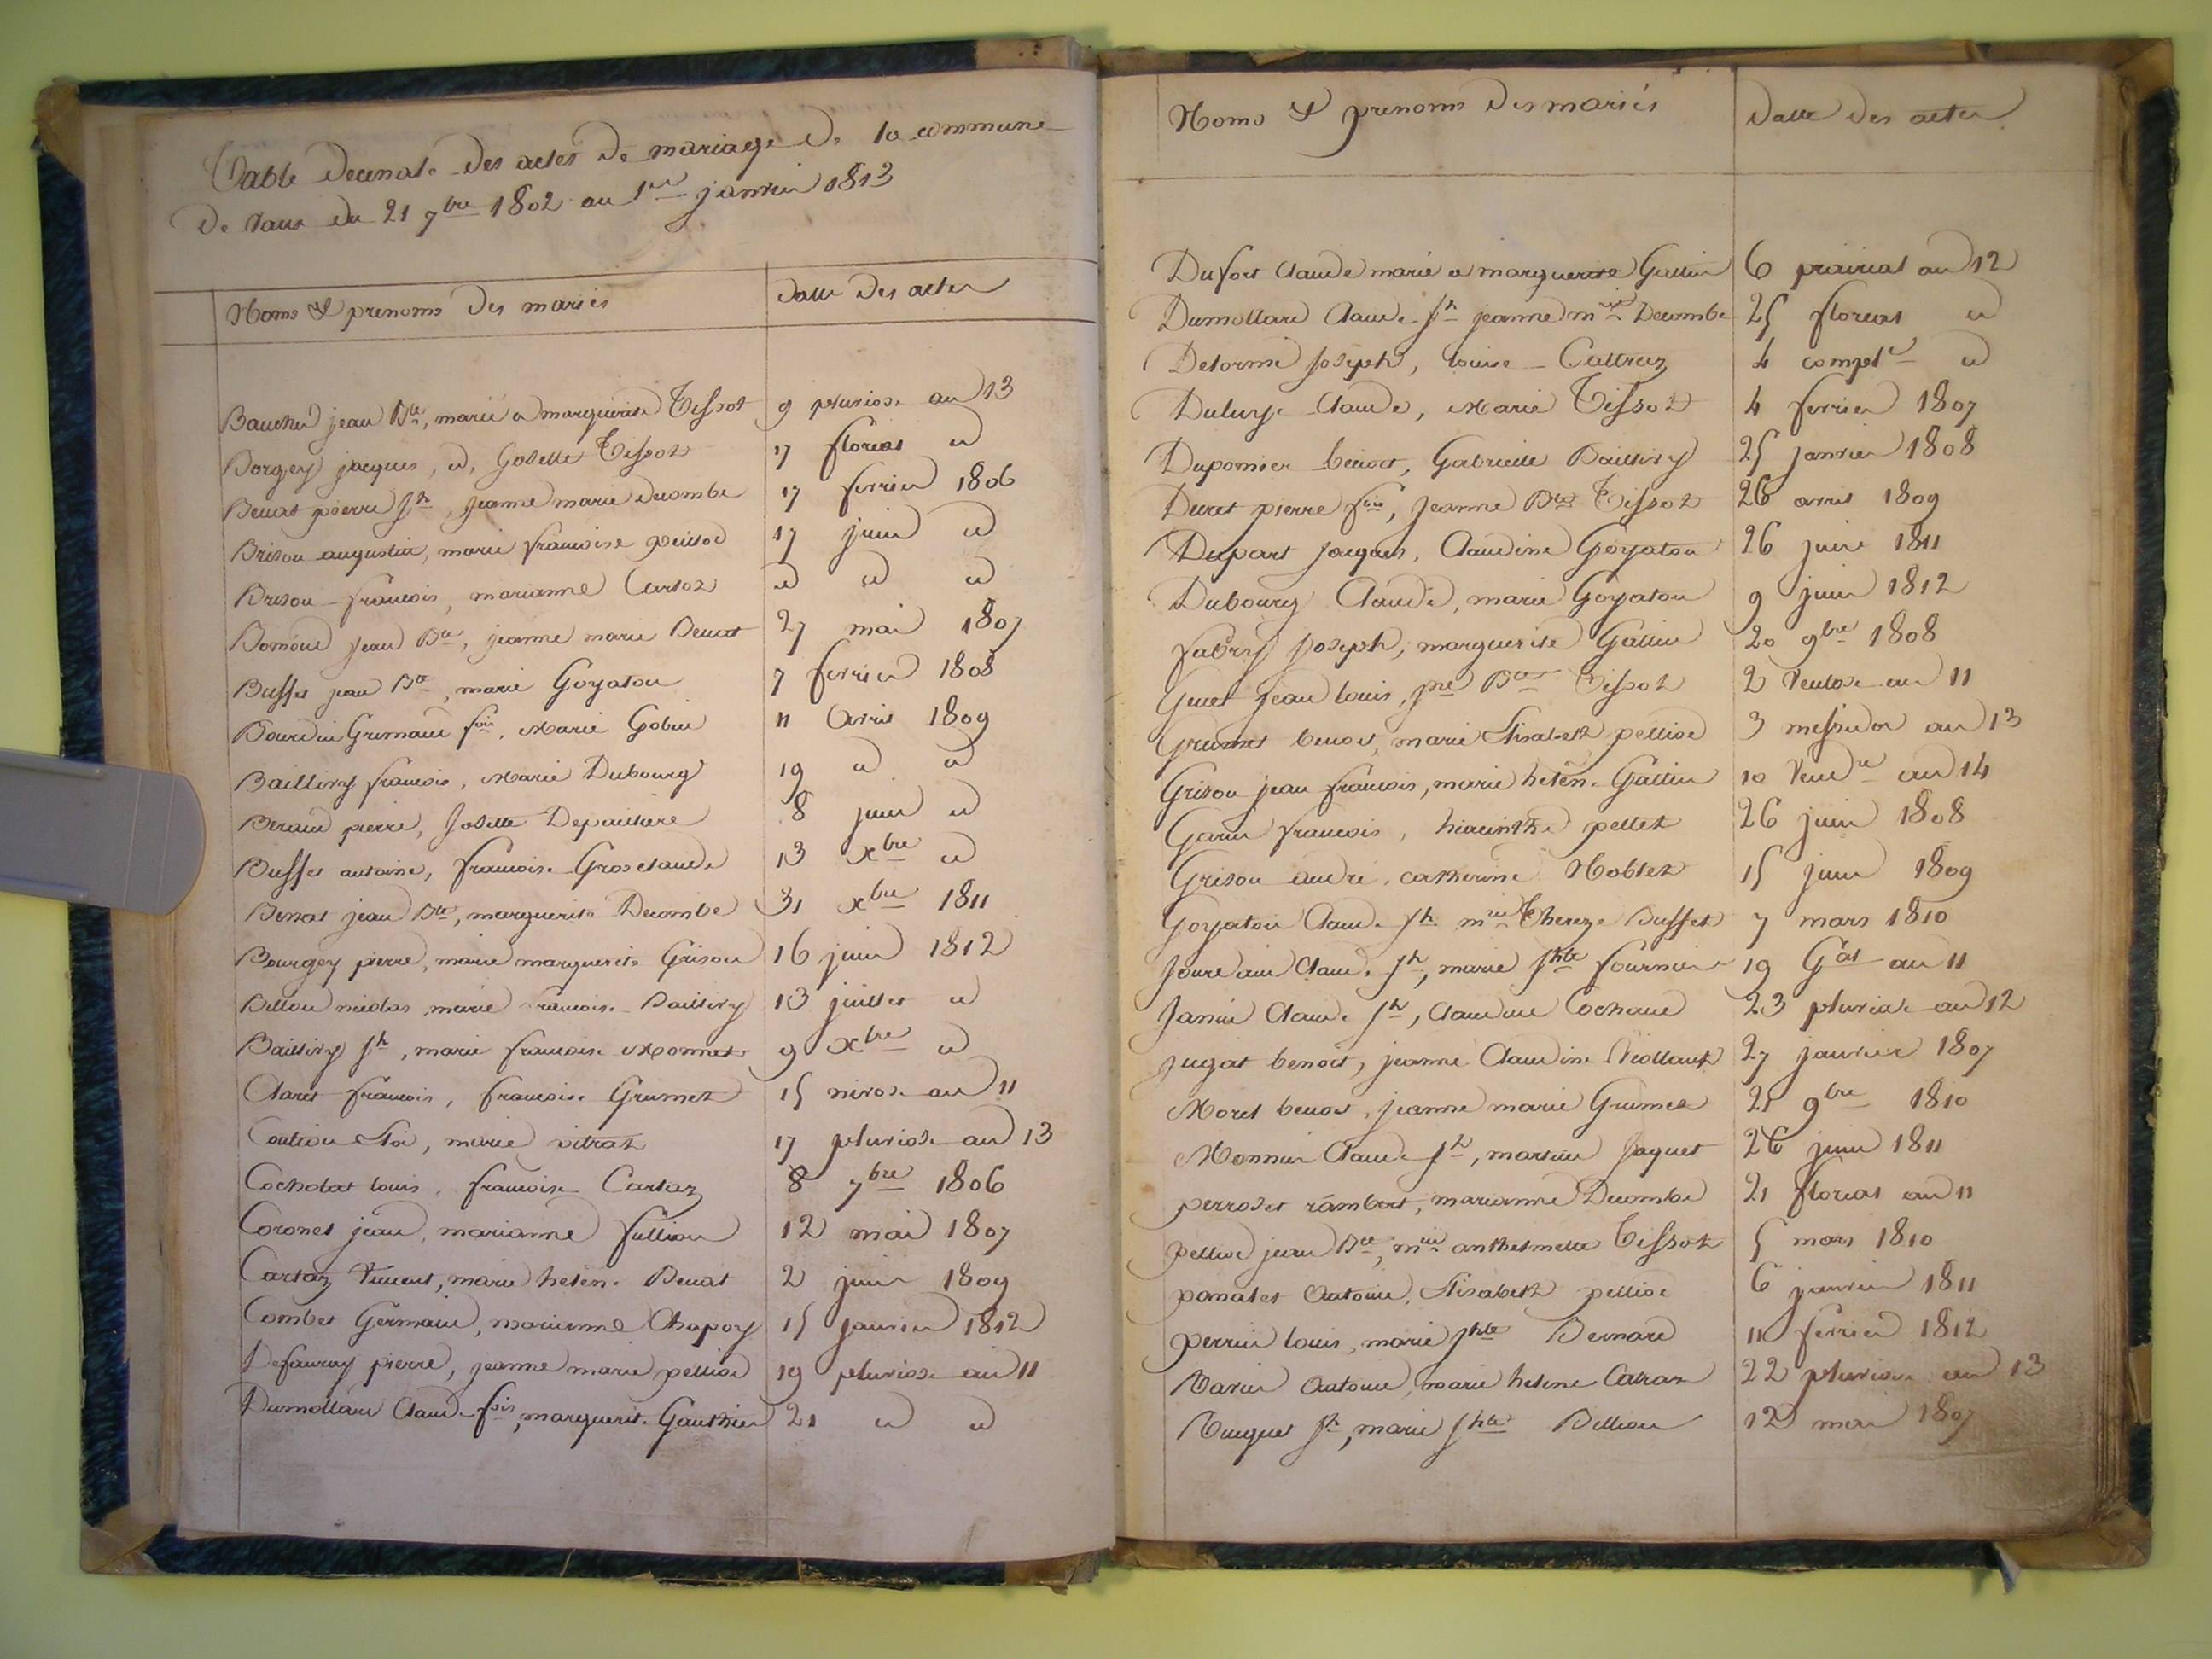 Table decenale des actes de mariage de la commune
de Vaux du 21 7bre 1802 au 1er janvier 1813
Noms & prenoms des mariés datte des actes
Baucher jean Bte, marié a marguerite Tissot 9 pluviose an 13
Borgey jacques, id, Josette Tissot 17 floreal id
Benat pierre Jh, jeanne marie decombe 17 fevrier 1806
Brison augustin, marie francoise peisson 17 juin id
Brison francois, marianne Cartoz id id id
Bomond jean Bte, jeanne marie Benat 27 mai 1807
Buffet jean Bte, marie Goyaton 7 fevrier 1808
Bourdin Grimaud fois, Marie Gobin 11 Avril 1809
Baillivy francois, Marie Dubourg 19 id id
Beraud pierre, Josette Depailliere 8 juin id
Buffet antoine, francoise Grosclaude 13 xbre id
Benat jean Bte, marguerite Decombe 31 xbre 1811
Bourgey pierre, marie marguerite Grison 16 juin 1812
Billon nicolas, marie francoise Baillivy 13 juillet id
Baillivy Jh, marie francoise Monnet 9 Xbre id
Claret francois, francoise Grumet 15 nivose an 11
Coulion Eloi, marie vitraz 17 pluviose an 13
Cocholat louis, francoise Cartaz 8 7bre 1806
Coronet jean, marianne fullion 12 mai 1807
Cartaz Vincent, marie helene Benat 2 juin 1809
Combet Germain, marianne Chapoy 15 janvier 1812
Defauray pierre, jeanne marie pellion 19 pluviose an 11
Dumollard Claude fois, marguerite Gauthier 21 id id
Noms & prenoms des mariés datte des actes
Dufort Claude marié a marguerite Gallin 6 prairial an 12
Dumollard Claude Jh jeanne mrite Decombe 25 floreal id
Delorme Joseph, louise Caltraz 4 complre id
Duluye Claude, Marie Tissot 4 fevrier 1807
Dupomier benoit, Gabrielle Baillivy 25 janvier 1808
Duret pierre fois, Jeanne Bte Tissot 26 avril 1809
Dupart jacques, Claudine Goyaton 26 juin 1811
Dubourg Claude, marie Goyaton 9 juin 1812
fabry Joseph, marguerite Gallin 20 9bre 1808
Genet jean louis, jne Bte Tissot 2 Ventose an 11
Grumet benoit, marie Elisabeth pellion 3 messidor an 13
Grison jean francois, marie helene Gallin 10 Vendre an 14
Garin francois, hiacinthe pellet 26 juin 1808
Grison andré, catherine Noblet 15 juin 1809
Goyaton Claude Jh mrie Thereze Buffet 7 mars 1810
Jourdain Claude Jh, marie Jhte fournier 19 Gal an 11
Janin Claude Jh, Claudine Cochard 23 pluviose an 12
jugat benoit, jeanne Claudine Viollant 27 janvier 1807
Moret benoit, jeanne marie Grumet 21 9bre 1810
Monnier Claude Jh, martine Jaquet 26 juin 1811
perroset rambert, marianne Decombe 21 floreal an 11
pellion jean Bte, mrie anthelmette Tissot 5 mars 1810
panalet Antoine, Elisabeth pellion 6 janvier 1811
perrin louis, marie Jhte Bernard 11 fevrier 1812
Ravier Antoine, marie helene Catraz 22 pluviose an 13
Ruguet Jh, marie Jhte Billion 12 mai 1807